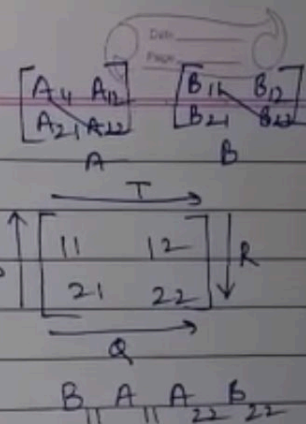 Date
Page
[A₁₁ A₁₂ [B₁₁ B₁₂
A₂₁ A₂₂] B₂₁ B₂₂]
A B
T
[11 12] R
21 22
Q
B₁₁ A₁₁ A₂₂ B₂₂